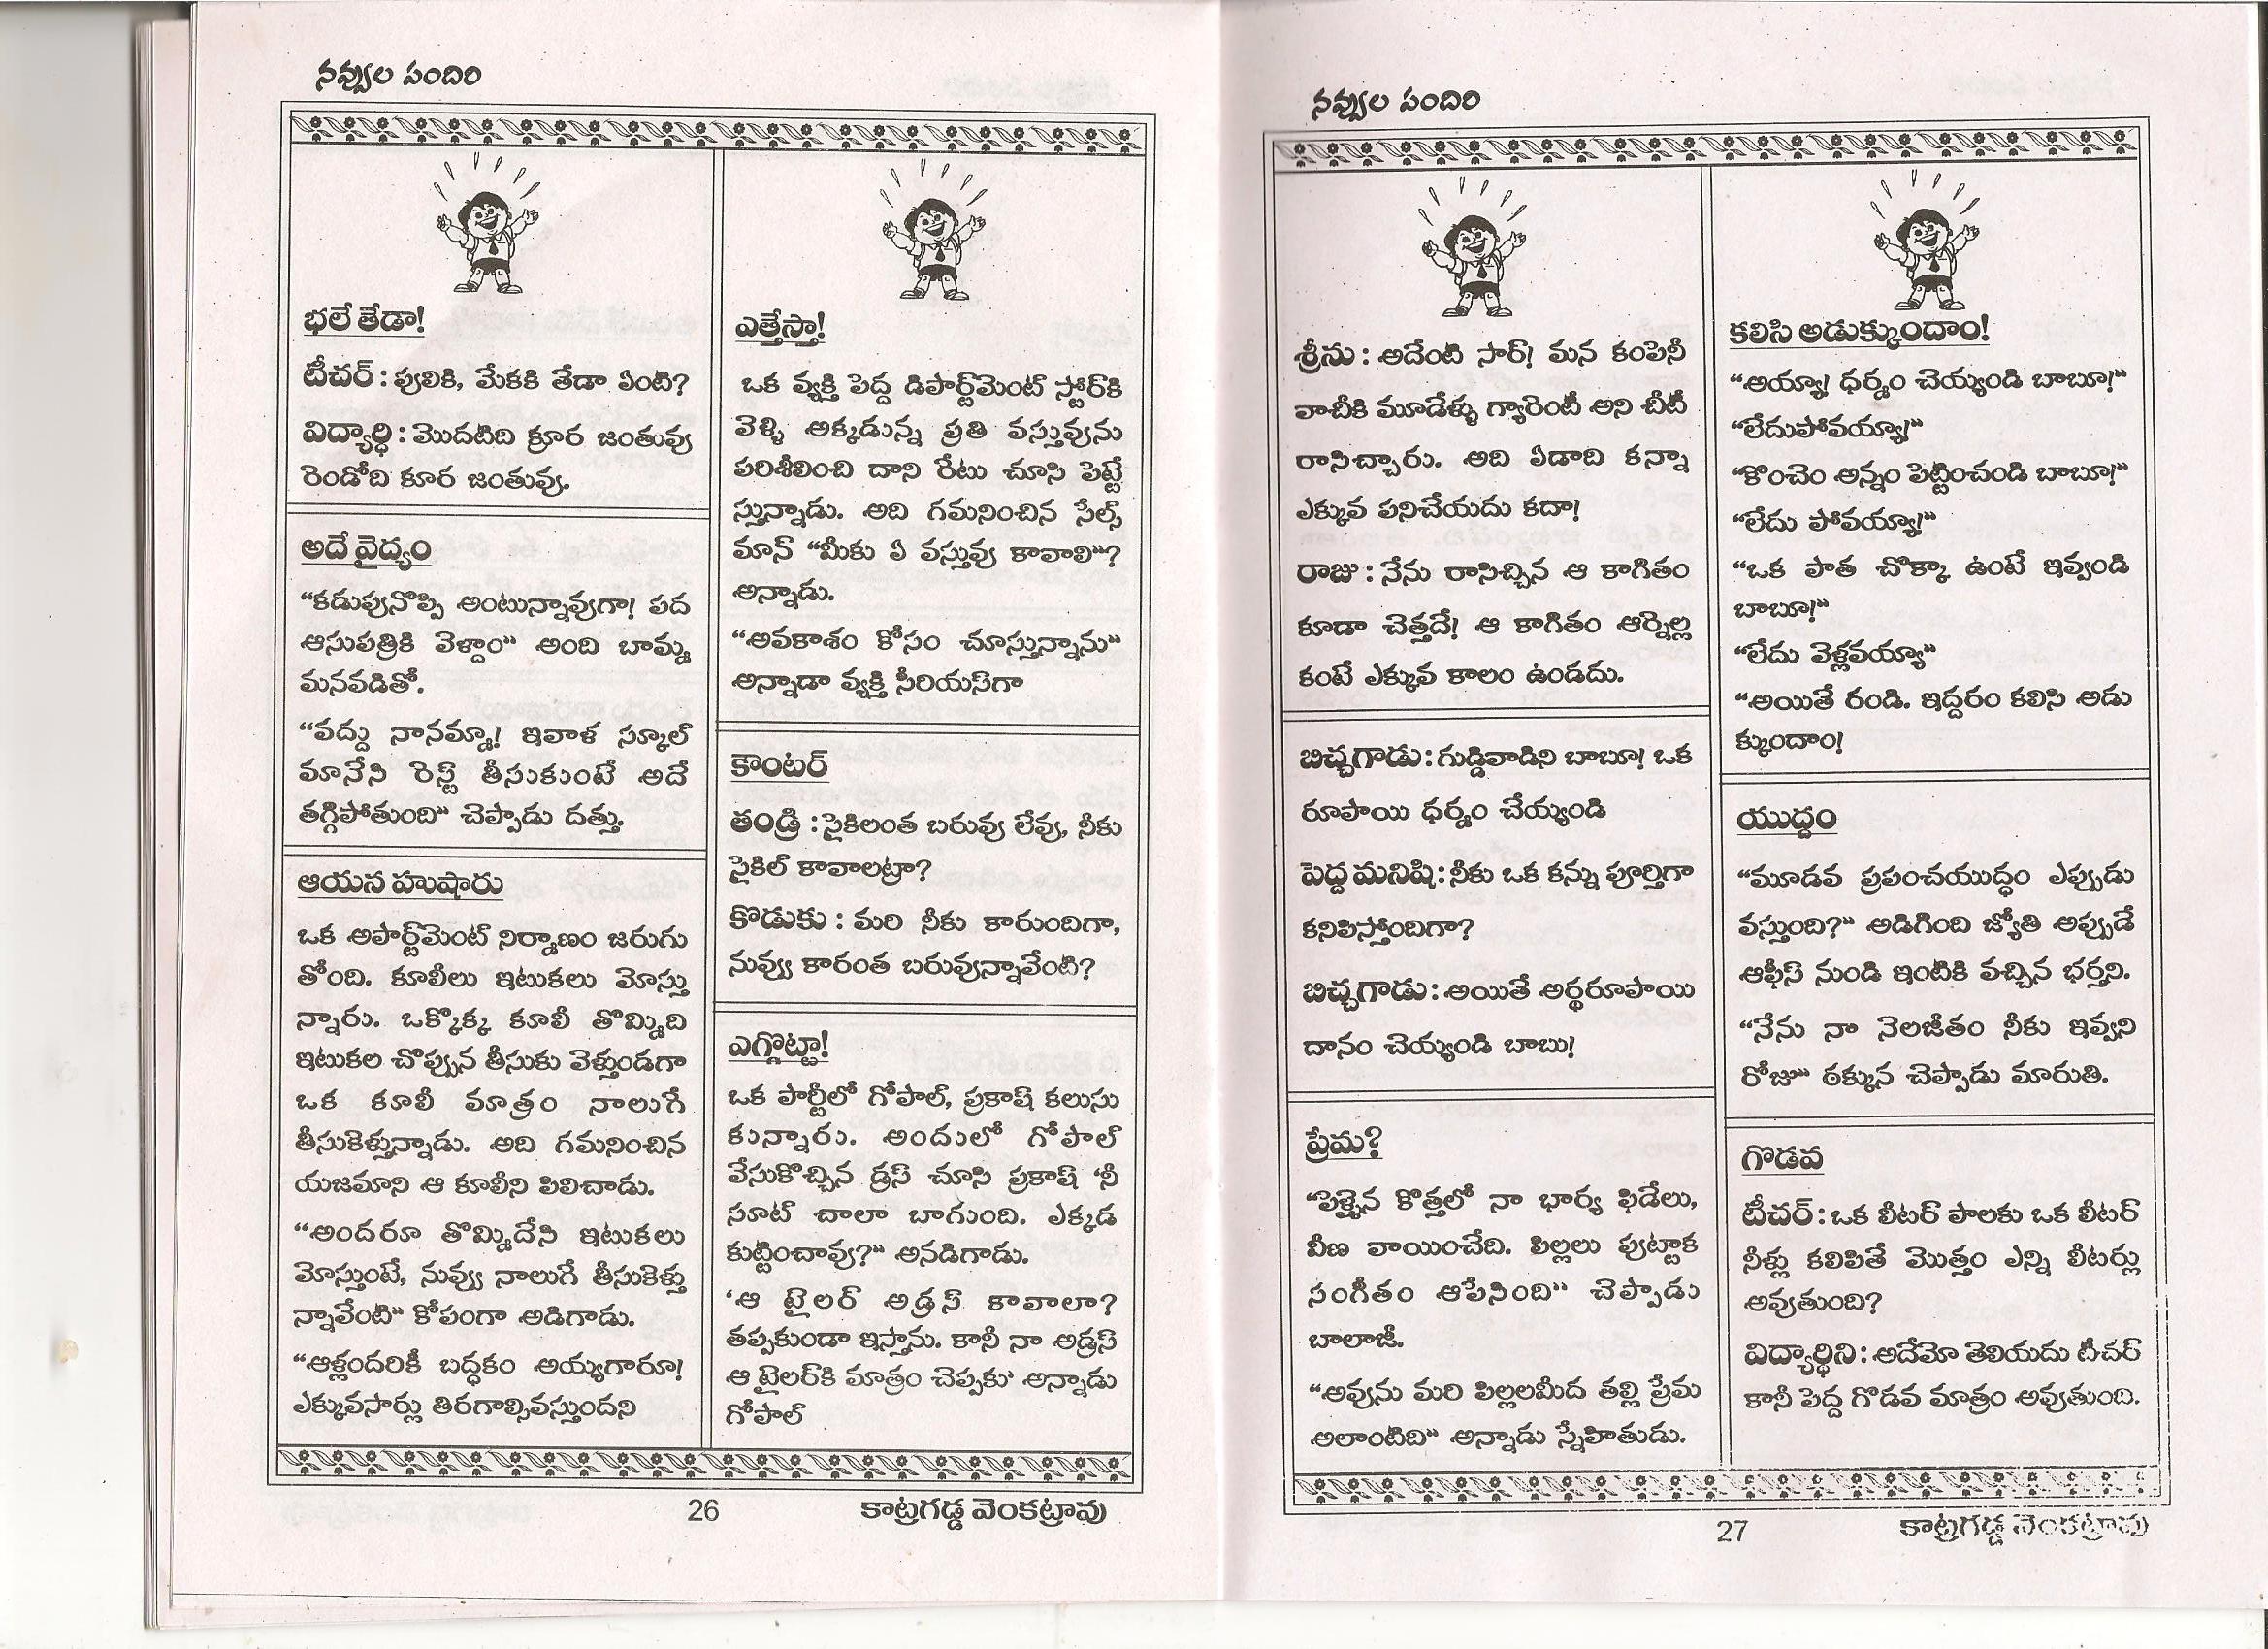 నవ్వుల పందిరి
భలే తేడా!
టీచర్ : పులికి, మేకకి తేడా ఏంటి?
విద్యార్ధి : మొదటిది క్రూర జంతువు
రెండోది కూర జంతువు.
అదే వైద్యం
“కడుపునొప్పి అంటున్నావుగా! పద
ఆసుపత్రికి వెళ్దాం” అంది బామ్మ
మనవడితో.
“వద్దు నానమ్మా! ఇవాళ స్కూల్
మానేసి రెస్ట్ తీసుకుంటే అదే
తగ్గిపోతుంది” చెప్పాడు దత్తు.
ఆయన హుషారు
ఒక అపార్ట్‌మెంట్ నిర్మాణం జరుగు
తోంది. కూలీలు ఇటుకలు మోస్తు
న్నారు. ఒక్కొక్క కూలీ తొమ్మిది
ఇటుకల చొప్పున తీసుకు వెళ్తుండగా
ఒక కూలీ మాత్రం నాలుగే
తీసుకెళ్తున్నాడు. అది గమనించిన
యజమాని ఆ కూలీని పిలిచాడు.
“అందరూ తొమ్మిదేసి ఇటుకలు
మోస్తుంటే, నువ్వు నాలుగే తీసుకెళ్తు
న్నావేంటి” కోపంగా అడిగాడు.
“ఆళ్లందరికీ బద్ధకం అయ్యగారూ!
ఎక్కువసార్లు తిరగాల్సివస్తుందని
ఎత్తేస్తా!
ఒక వ్యక్తి పెద్ద డిపార్ట్‌మెంట్ స్టోర్‌కి
వెళ్ళి అక్కడున్న ప్రతి వస్తువును
పరిశీలించి దాని రేటు చూసి పెట్టే
స్తున్నాడు. అది గమనించిన సేల్స్
మాన్ “మీకు ఏ వస్తువు కావాలి”?
అన్నాడు.
“అవకాశం కోసం చూస్తున్నాను”
అన్నాడా వ్యక్తి సీరియస్‌గా
కౌంటర్
తండ్రి : సైకిలంత బరువు లేవు, నీకు
సైకిల్ కావాలట్రా?
కొడుకు : మరి నీకు కారుందిగా,
నువ్వు కారంత బరువున్నావేంటి?
ఎగ్గొట్టా!
ఒక పార్టీలో గోపాల్, ప్రకాష్ కలుసు
కున్నారు. అందులో గోపాల్
వేసుకొచ్చిన డ్రస్ చూసి ప్రకాష్ ‘నీ
సూట్ చాలా బాగుంది. ఎక్కడ
కుట్టించావు?” అనడిగాడు.
‘ఆ టైలర్ అడ్రస్ కావాలా?
తప్పకుండా ఇస్తాను. కానీ నా అడ్రస్
ఆ టైలర్‌కి మాత్రం చెప్పకు’ అన్నాడు
గోపాల్
26
కాట్రగడ్డ వెంకట్రావు
నవ్వుల పందిరి
శ్రీను : అదేంటి సార్! మన కంపెనీ
వాచీకి మూడేళ్ళు గ్యారెంటీ అని చీటీ
రాసిచ్చారు. అది ఏడాది కన్నా
ఎక్కువ పనిచేయదు కదా!
రాజు : నేను రాసిచ్చిన ఆ కాగితం
కూడా చెత్తదే! ఆ కాగితం ఆర్నెల్ల
కంటే ఎక్కువ కాలం ఉండదు.
బిచ్చగాడు : గుడ్డివాడిని బాబూ! ఒక
రూపాయి ధర్మం చేయ్యండి
పెద్ద మనిషి : నీకు ఒక కన్ను పూర్తిగా
కనిపిస్తోందిగా?
బిచ్చగాడు : అయితే అర్థరూపాయి
దానం చెయ్యండి బాబు!
ప్రేమ?
“పెళ్ళైన కొత్తలో నా భార్య ఫిడేలు,
వీణ వాయించేది. పిల్లలు పుట్టాక
సంగీతం ఆపేసింది” చెప్పాడు
బాలాజీ.
“అవును మరి పిల్లలమీద తల్లి ప్రేమ
అలాంటిది” అన్నాడు స్నేహితుడు.
కలిసి అడుక్కుందాం!
“అయ్యా! ధర్మం చెయ్యండి బాబూ!”
“లేదుపోవయ్యా!”
“కొంచెం అన్నం పెట్టించండి బాబూ!”
“లేదు పోవయ్యా!”
“ఒక పాత చొక్కా ఉంటే ఇవ్వండి
బాబూ!”
“లేదు వెళ్లవయ్యా”
“అయితే రండి. ఇద్దరం కలిసి అడు
క్కుందాం!
యుద్ధం
“మూడవ ప్రపంచయుద్ధం ఎప్పుడు
వస్తుంది?” అడిగింది జ్యోతి అప్పుడే
ఆఫీస్ నుండి ఇంటికి వచ్చిన భర్తని.
“నేను నా నెలజీతం నీకు ఇవ్వని
రోజు” ఠక్కున చెప్పాడు మారుతి.
గొడవ
టీచర్ : ఒక లీటర్ పాలకు ఒక లీటర్
నీళ్లు కలిపితే మొత్తం ఎన్ని లీటర్లు
అవుతుంది?
విద్యార్థిని : అదేమో తెలియదు టీచర్
కానీ పెద్ద గొడవ మాత్రం అవుతుంది.
27
కాట్రగడ్డ వెంకట్రావు